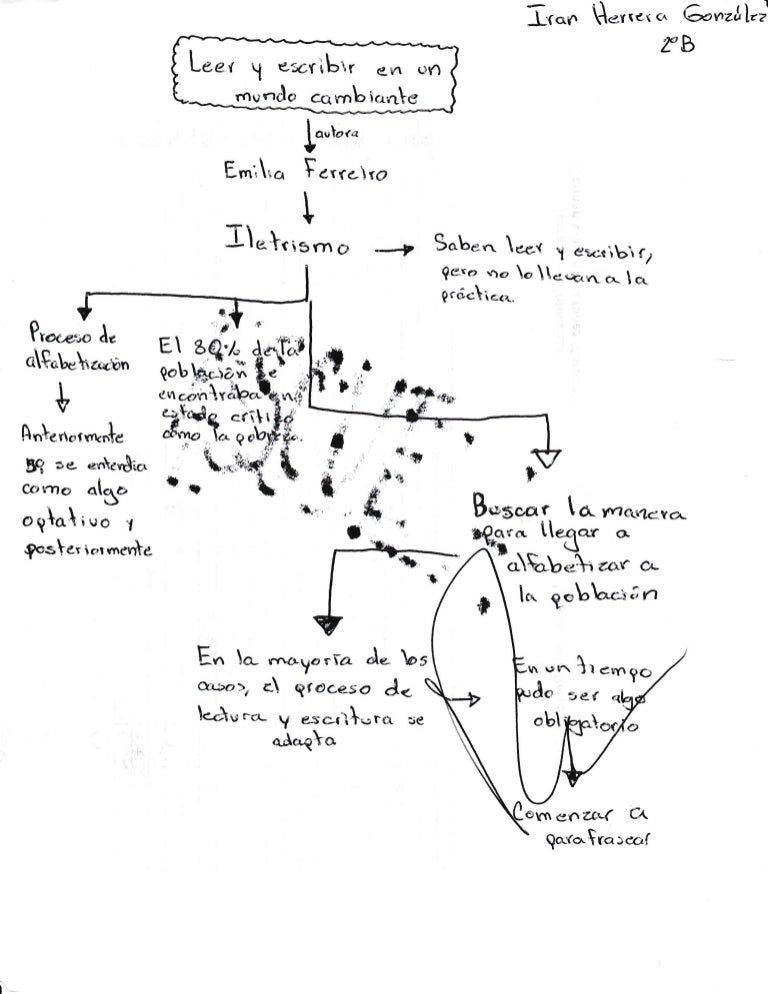 Ivan Herrera González
2º B
Leer y escribir en un
mundo cambiante
autora
Emilia Ferreiro
Iletrismo
Saben leer y escribir,
pero no lo llevan a la
práctica.
Proceso de
alfabetización
Anteriormente
se entendia
como algo
optativo y
posteriormente
El 80% de la
población se
encontraba en
estado critico
como la pobreza.
Buscar la manera
para llegar a
alfabetizar a
la población
En la mayoría de los
casos, el proceso de
lectura y escritura se
adapta
En un tiempo
pudo ser algo
obligatorio
Comenzar a
parafrasear